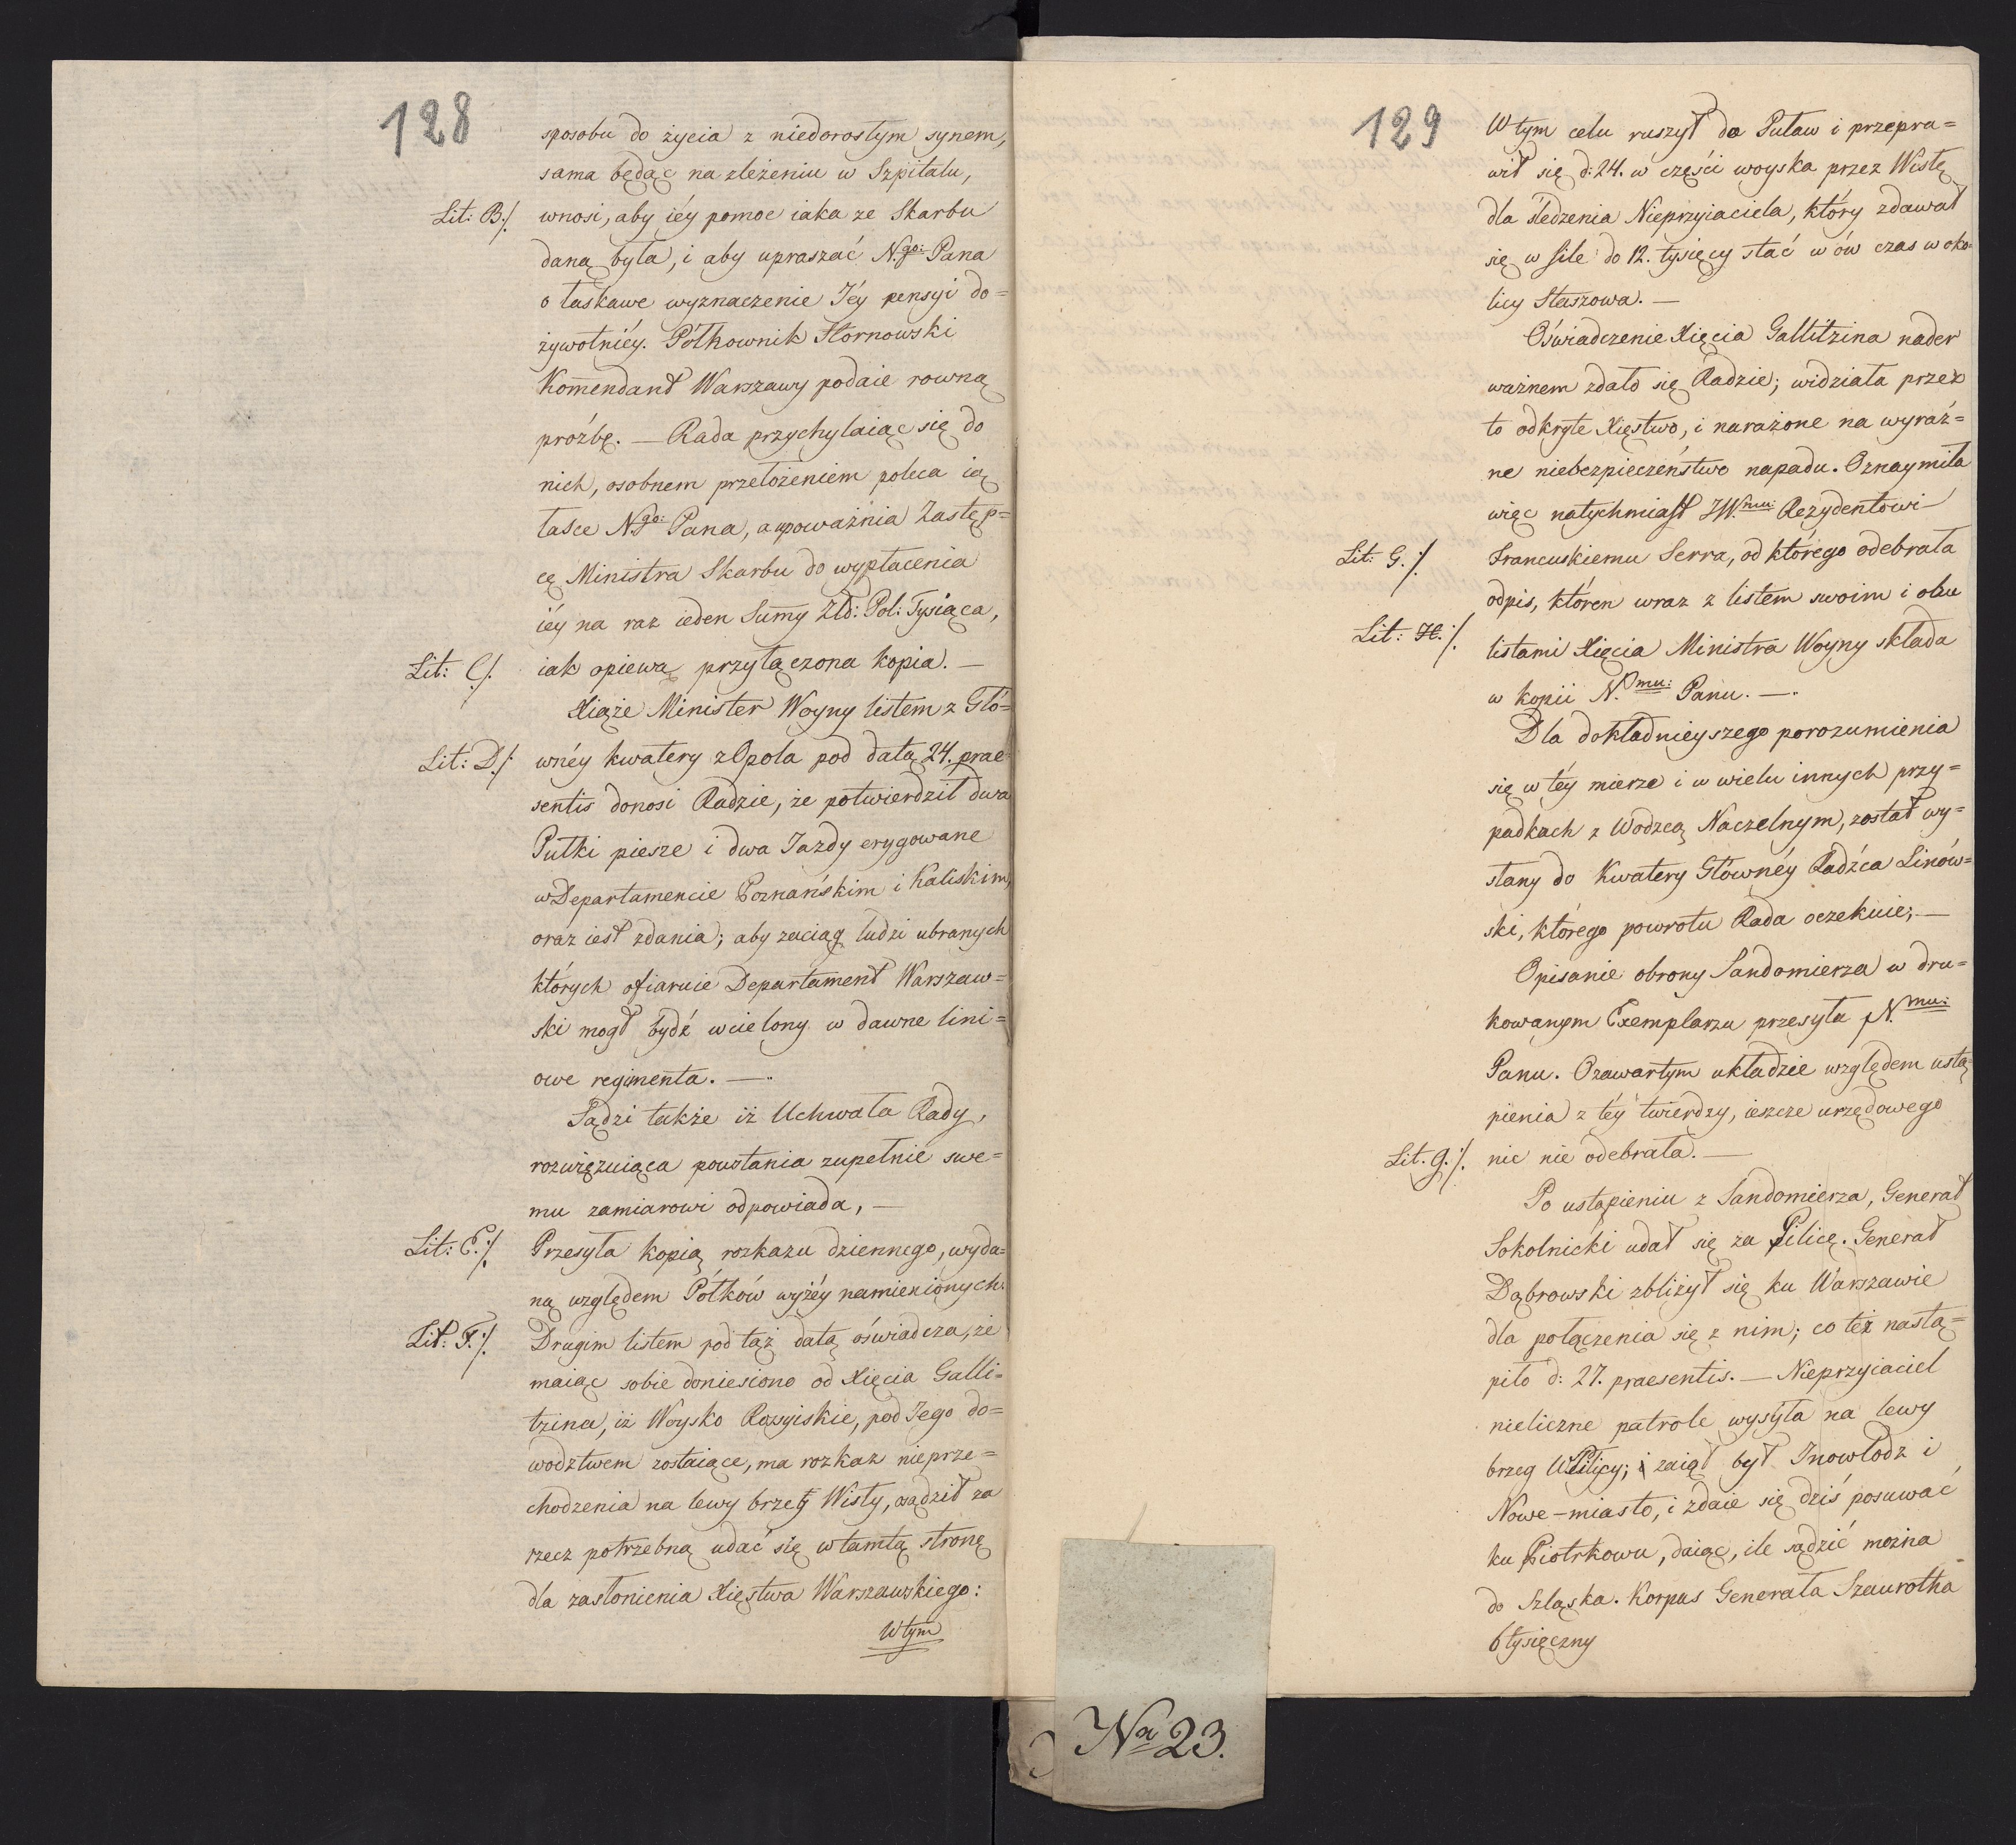 128
sposobu do życia z niedorostym synem,
sama będąc na zleżeniu w Szpitalu,
Lit: B./. wnosi, aby iéy pomoc iaka ze Skarbu
daną była, i aby upraszać N.go: Pana
o łaskawe wyznaczenie Jéy pensyi do=
żywotniéy. Półkownik Hornowski
Komendant Warszawy podaie rowną
proźbę. — Rada przychylaiąc się do
nich, osobnem przełożeniem poleca ią
łasce N.go: Pana, a upoważnia Zastęp=
cę Ministra Skarbu do wypłacenia
iéy na raz ieden Summy Złd: Pol: Tysiąca,
Lit: C./. iak opiewa przyłączona kopia. —
Xiąże Minister Woyny listem z Głó=
Lit: D./. wnéy kwatery z Opola pod datą 24. prae=
sentis donosi Radzie, że potwierdził dwa
Pułki piesze i dwa Jazdy erygowane
w Departamencie Poznańskim i Kaliskim,
oraz iest zdania; aby zaciąg ludzi ubranych
których ofiaruie Departament Warszaw=
ski mogł bydź wcielony w dawne lini=
owe regimenta. —
Sądzi także iż Uchwała Rady,
rozwięzuiąca powstania zupełnie swe=
mu zamiarowi odpowiada, —
Lit: E./. Przesyła kopią rozkazu dziennego, wyda=
ną względem Półków wyżéy namienionych.
Lit: F./. Drugim listem pod tąż datą oświadcza, że
maiąc sobie doniesiono od Xięcia Galli=
tzina, iż Woysko Rossyiskie, pod Jego do=
wodztwem zostaiące, ma rozkaz nieprze=
chodzenia na lewy brzeg Wisły, osądził za
rzecz potrzebną udać się w tamtą stronę
dla zasłonienia Xięstwa Warszawskiego:
W tym
129
W tym celu ruszył do Puław i przepra=
wił się d: 24. w części woyska przez Wisłę
dla śledzenia Nieprzyiaciela, który zdawał
się w sile do 12. tysięcy stać w ów czas w oko=
licy Staszowa. —
Oświadczenie Xięcia Gallitzina nader
ważnem zdało się Radzie; widziała przez
to odkryte Xięstwo, i narażone na wyraź=
ne niebezpieczeństwo napadu. Oznaymiła
więc natychmiast JW.mu: Rezydentowi
Lit: G./. Francuskiemu Serra, od którego odebrała
odpis, któren wraz z listem swoim i obu
Lit: H./. listami Xięcia Ministra Woyny składa
w kopii N.mu: Panu. —
Dla dokładnieyszego porozumienia
się w téy mierze i w wielu innych przy=
padkach z Wodzem Naczelnym, został wy=
słany do Kwatery Głównéy Radźca Linow=
ski, którego powrotu Rada oczekuie; —
Opisanie obrony Sandomierza w dru=
kowanym Exemplarzu przesyła N.mu:
Panu. O zawartym układzie względem ustą=
pienia z téy twierdzy, ieszcze urzędowego
Lit. G./. nic nie odebrała. —
Po ustąpieniu z Sandomierza, Generał
Sokolnicki udał się za Pilicę. Generał
Dąbrowski zbliżył się ku Warszawie
dla połączenia się z nim; co téż nastą=
piło d: 27. praesentis. — Nieprzyiaciel
nieliczne patrole wysyła na lewy
brzeg Pilicy; i zaiął był Inowłodz i
Nowe-miasto, i zdaie się dziś posuwać
ku Piotrkowu, daiąc, ile sądzić można
do Szląska. Korpus Generała Szaurotha
6 tysięczny
Na 23.